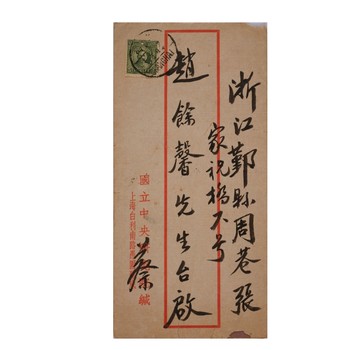 浙江鄞縣周巷張
家祝橋不号
趙餘馨先生台啟
國立中央
緘
上海白利南路
蔡